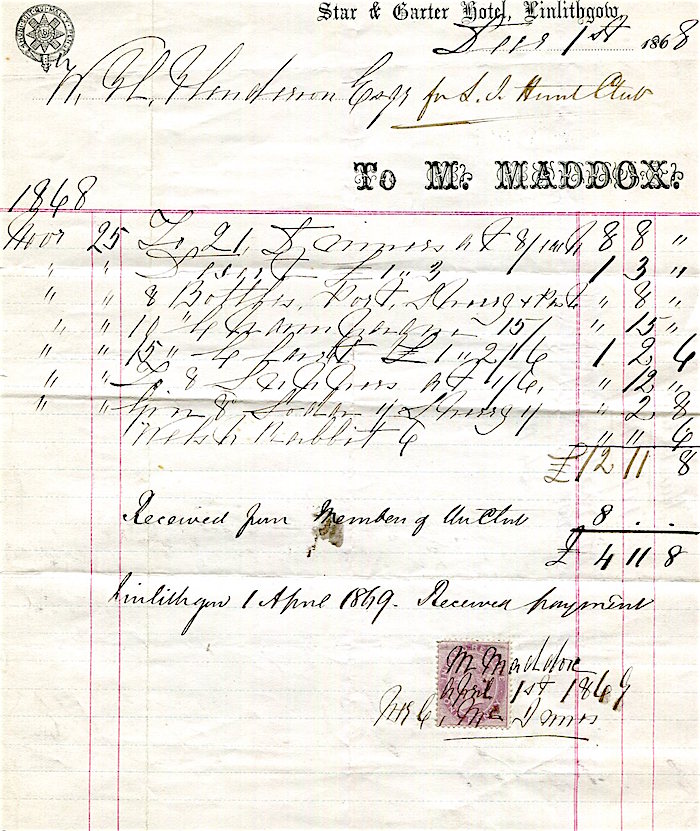 Star & Garter Hotel, Linlithgow,
Decr 1st 1868
W. H. Henderson Esqr for L. & Hunt Club
To M. MADDOX.
1868
Novr 25 To 21 Dinners at 8/ each 8 8 "
" " Desert £1 " 3 1 3 "
" " 8 Bottles, Port, Sherry & " 8 "
" " 10 " Champagne 15/ " 15 "
" " 15 " Claret £1 " 2/6 1 2 6
" " To 8 Suppers at 1/6, " 12 "
" " Gin & Soda Sherry " 2 8
Welsh Rabbit 6 " " 6
£12 11 8
Received from Members of the Club 8 . .
£ 4 11 8
Linlithgow 1 April 1869. Received payment
M Maddox
April 1st 1869